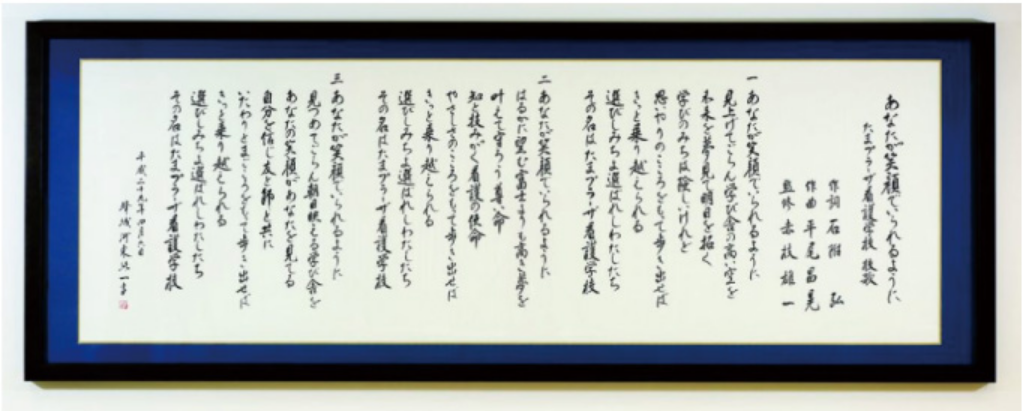 あなたが笑顔でいられるように
たまプラーザ看護学校 校歌
作詞 石附 弘
作曲 平尾昌晃
監修 赤枝雄一
一 あなたが笑顔でいられるように
見上げてごらん学び舎の高い空を
未来を夢見て明日を拓く
学びのみちは険しいけれど
思いやりのこころをもって歩き出せば
きっと乗り越えられる
選びしみちよ選ばれしわたしたち
その名はたまプラーザ看護学校
二 あなたが笑顔でいられるように
はるかに望む富士よりも高き夢を
叶えて守ろう尊い命
知と技みがく看護の使命
やさしさのこころをもって歩き出せば
きっと乗り越えられる
選びしみちよ選ばれしわたしたち
その名はたまプラーザ看護学校
三 あなたが笑顔でいられるように
見つめてごらん朝日映える学び舎を
あなたの笑顔があなたを見てる
自分を信じ友と師と共に
いたわりとまごころをもって歩き出せば
きっと乗り越えられる
選びしみちよ選ばれしわたしたち
その名はたまプラーザ看護学校
平成二十九年四月六日